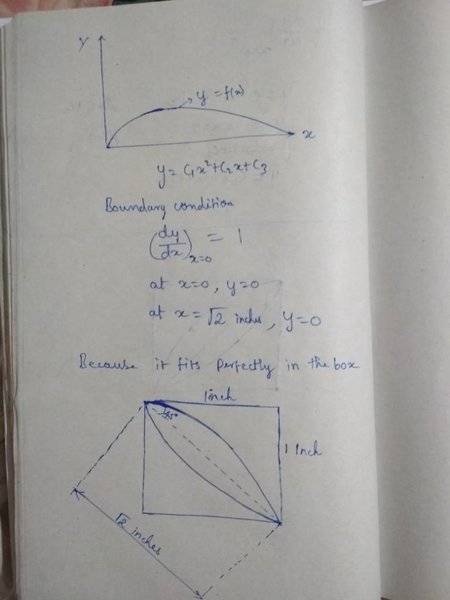 y
y = f(x)
x
y = C₁x² + C₂x + C₃
Boundary condition
(dy/dx)ₓ₌₀ = 1
at x=0, y=0
at x = √2 inches, y=0
Because it fits perfectly in the box
1 inch
45°
1 Inch
√2 inches